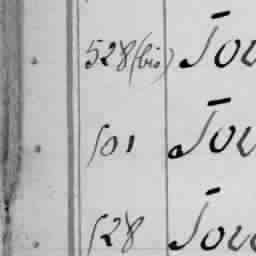 528(bis) Tou
501 Tou
528 Tou